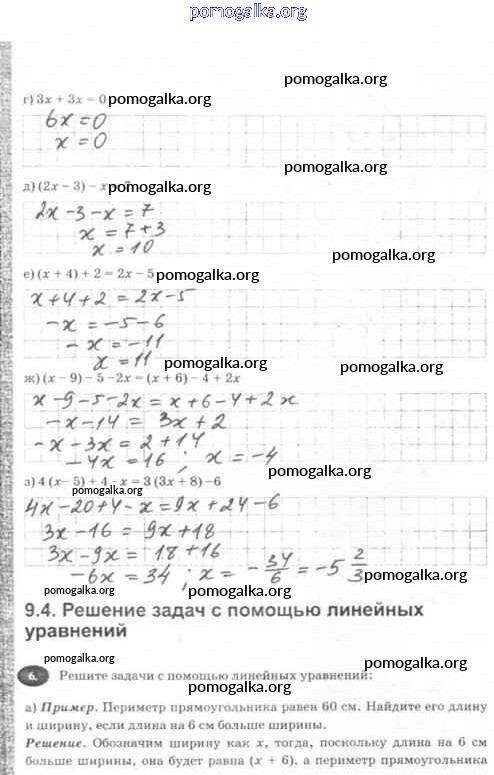 pomogalka.org
pomogalka.org
г) 3x + 3x = 0 pomogalka.org
6x = 0
x = 0
pomogalka.org
д) (2x − 3) − x pomogalka.org
2x − 3 − x = 7
x = 7 + 3
x = 10
pomogalka.org
е) (x + 4) + 2 = 2x − 5 pomogalka.org
x + 4 + 2 = 2x − 5
− x = − 5 − 6
− x = − 11
x = 11 pomogalka.org pomogalka.org
ж) (x − 9) − 5 − 2x = (x + 6) − 4 + 2x
x − 9 − 5 − 2x = x + 6 − 4 + 2x
− x − 14 = 3x + 2
− x − 3x = 2 + 14
− 4x = 16 ; x = − 4
з) 4 (x − 5) + 4 − x = 3 (3x + 8) − 6
pomogalka.org
4x − 20 + 4 − x = 9x + 24 − 6
3x − 16 = 9x + 18
3x − 9x = 18 + 16
− 6x = 34 ; x = − 34/6 = − 5 2/3 pomogalka.org
9.4. Решение задач с помощью линейных
уравнений
pomogalka.org pomogalka.org
6. Решите задачи с помощью линейных уравнений:
pomogalka.org pomogalka.org
а) Пример. Периметр прямоугольника равен 60 см. Найдите его длину
и ширину, если длина на 6 см больше ширины.
Решение. Обозначим ширину как x, тогда, поскольку длина на 6 см
больше ширины, она будет равна (x + 6), а периметр прямоугольника